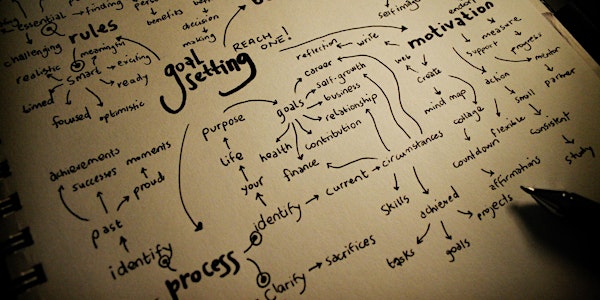 essential
finding
personal
benefits
decision
making
REACH ONE!
self image
endorse
rules
challenging
meaningful
realistic
smart
exciting
timed
ready
focused
optimistic
goal
setting
reflection
write
career
self-growth
goals
business
relationship
contribution
health
finance
motivation
measure
support
progress
monitor
web
create
mind map
action
small
partner
collage
flexible
consistent
countdown
affirmations
study
purpose
life
your
identify
current
circumstances
skills
achieved
projects
tasks
goals
achievements
successes
moments
proud
past
identify
process
clarify
sacrifices